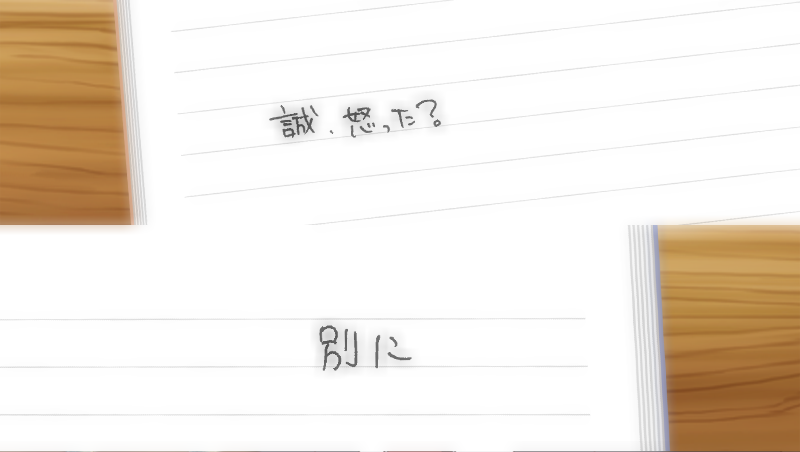 誠、怒った?
別に